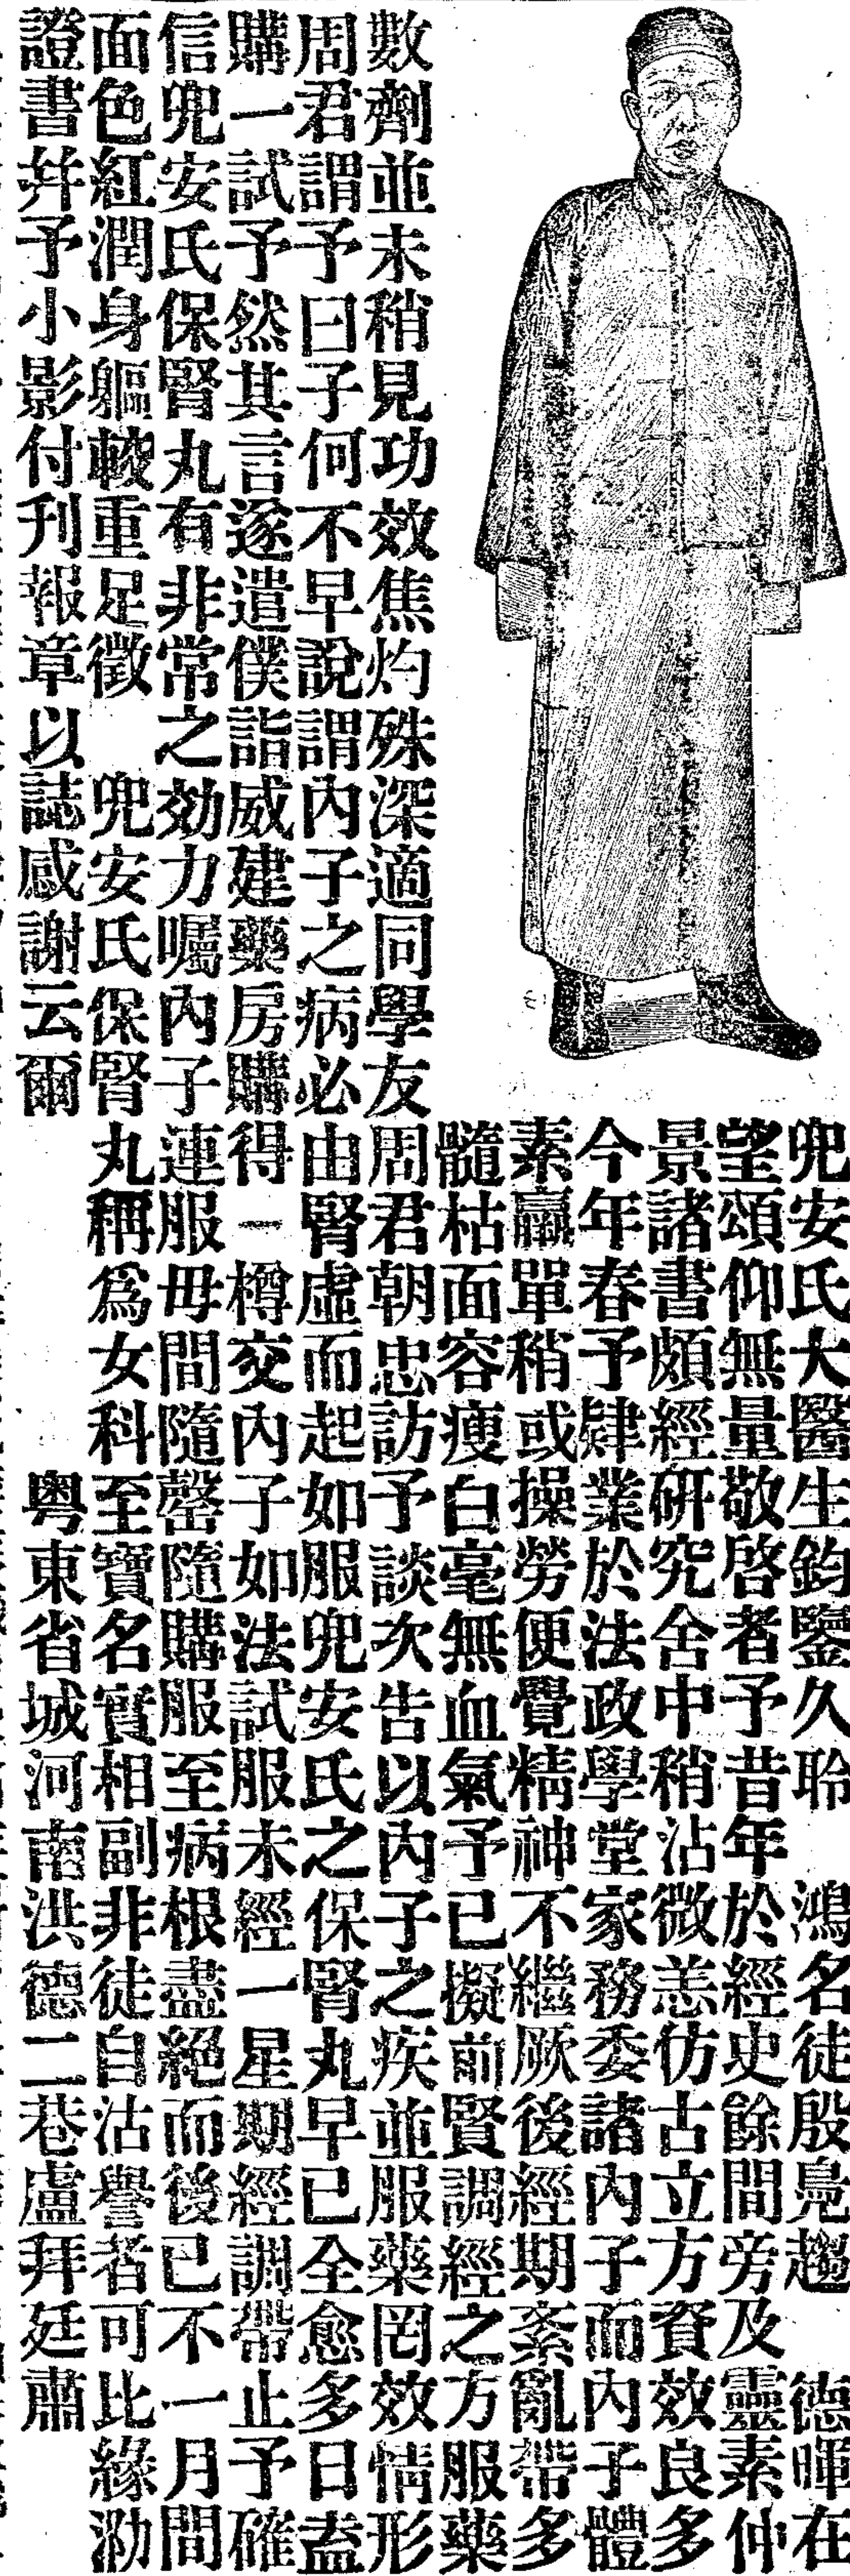 兜安氏大醫生鈞鑒久聆 鴻名徒殷鳧趨 德暉在
望頌仰無量敬啓者予昔年於經史餘間旁及 靈素仲
景諸書頗經研究舍中稍沾微恙仿古立方資效良多
今年春予肄業於法政學堂家務委諸內子而內子體
素羸單稍或操勞便覺精神不繼厥後經期紊亂帶多
髓枯面容瘦白毫無血氣予已擬前賢調經之方服藥
數劑並未稍見功效焦灼殊深適同學友周君朝忠訪予談次告以內子之疾並服藥罔效情形
周君謂予曰子何不早說謂內子之病必由腎虛而起如服兜安氏之保腎丸早已全愈多日盍
購一試予然其言遂遣僕詣威建藥房購得一樽交內子如法試服未經一星期經調帶止予確
信兜安氏保腎丸有非常之効力囑內子連服毋間隨罄隨購服至病根盡絕而後已不一月間
面色紅潤身軀較重足徵 兜安氏保腎丸稱爲女科至寶名實相副非徒自沽譽者可比緣泐
證書幷予小影付刊報章以誌感謝云爾 粤東省城河南洪德二巷盧拜廷肅